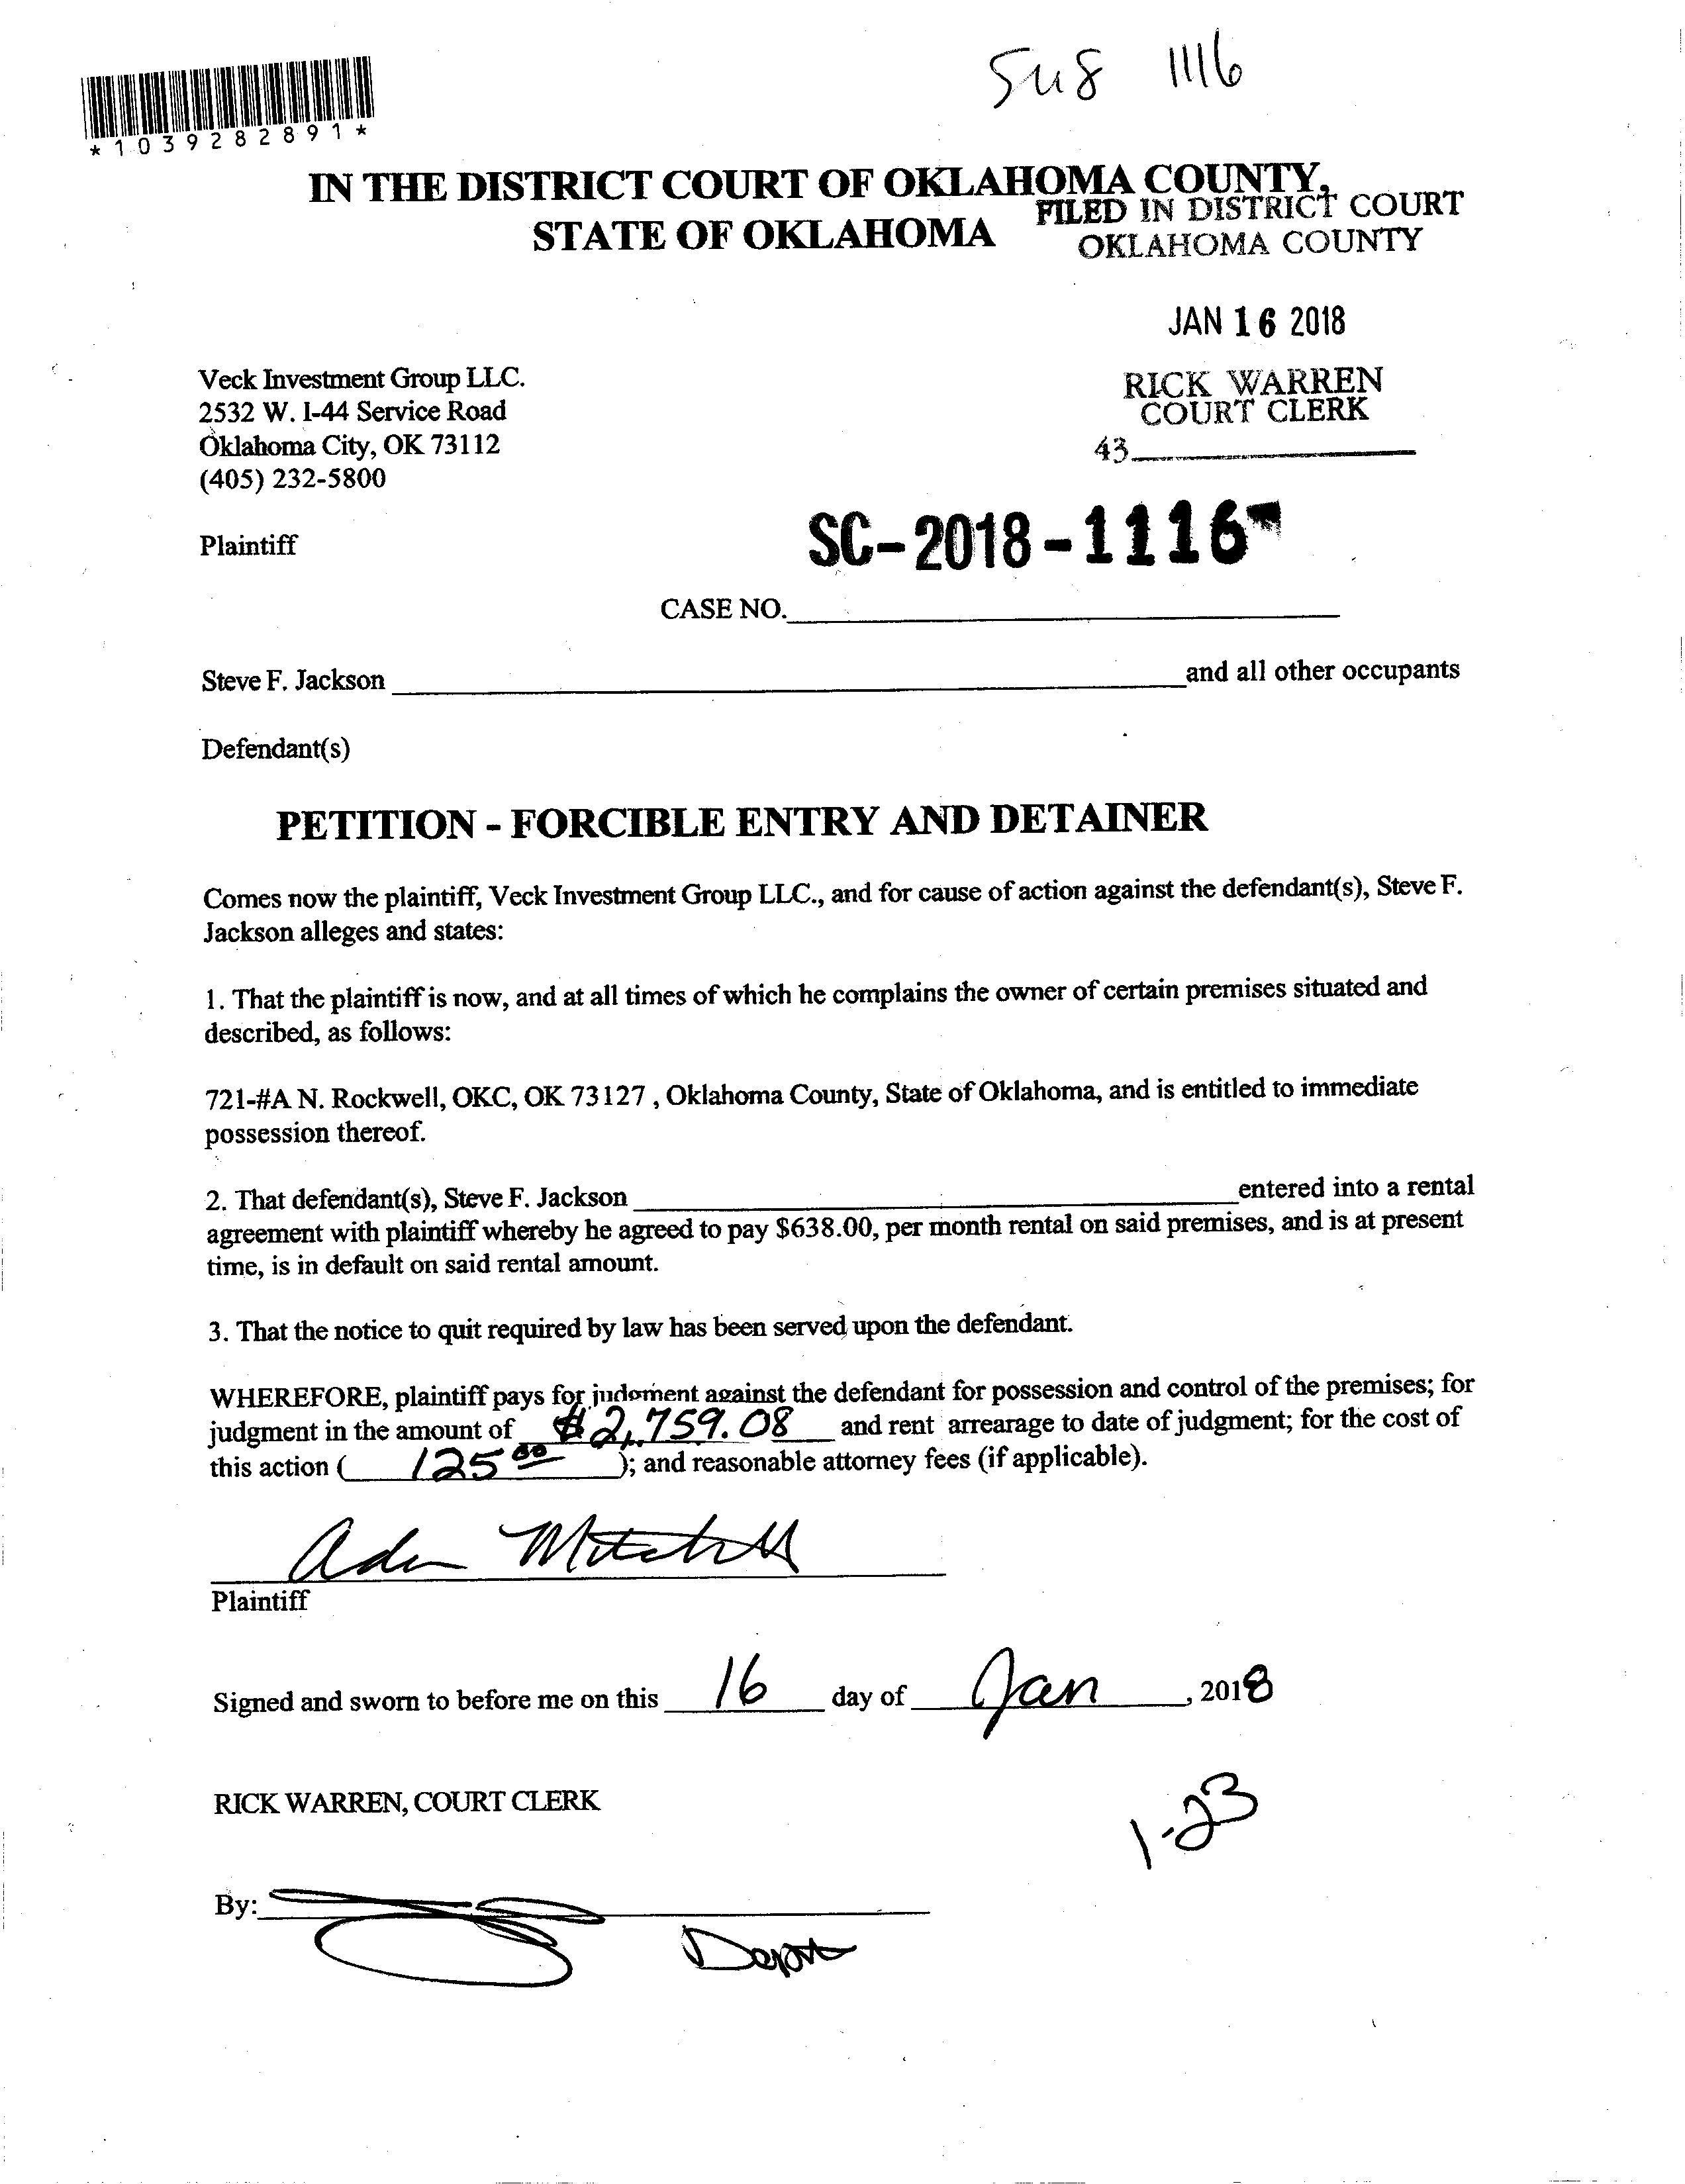 1116
*1039282891*
IN THE DISTRICT COURT OF OKLAHOMA COUNTY,
STATE OF OKLAHOMA
FILED IN DISTRICT COURT
OKLAHOMA COUNTY
JAN 16 2018
RICK WARREN
COURT CLERK
43
Veck Investment Group LLC.
2532 W. I-44 Service Road
Oklahoma City, OK 73112
(405) 232-5800
Plaintiff
SC-2018-1116
CASE NO.
Steve F. Jackson and all other occupants
Defendant(s)
PETITION - FORCIBLE ENTRY AND DETAINER
Comes now the plaintiff, Veck Investment Group LLC., and for cause of action against the defendant(s), Steve F.
Jackson alleges and states:
1. That the plaintiff is now, and at all times of which he complains the owner of certain premises situated and
described, as follows:
721-#A N. Rockwell, OKC, OK 73127 , Oklahoma County, State of Oklahoma, and is entitled to immediate
possession thereof.
2. That defendant(s), Steve F. Jackson entered into a rental
agreement with plaintiff whereby he agreed to pay $638.00, per month rental on said premises, and is at present
time, is in default on said rental amount.
3. That the notice to quit required by law has been served upon the defendant.
WHEREFORE, plaintiff pays for judgment against the defendant for possession and control of the premises; for
judgment in the amount of $2,759.08 and rent arrearage to date of judgment; for the cost of
this action ( 125 00 ); and reasonable attorney fees (if applicable).
Mitchell
Plaintiff
Signed and sworn to before me on this 16 day of Jan , 2018
RICK WARREN, COURT CLERK
1-23
By: